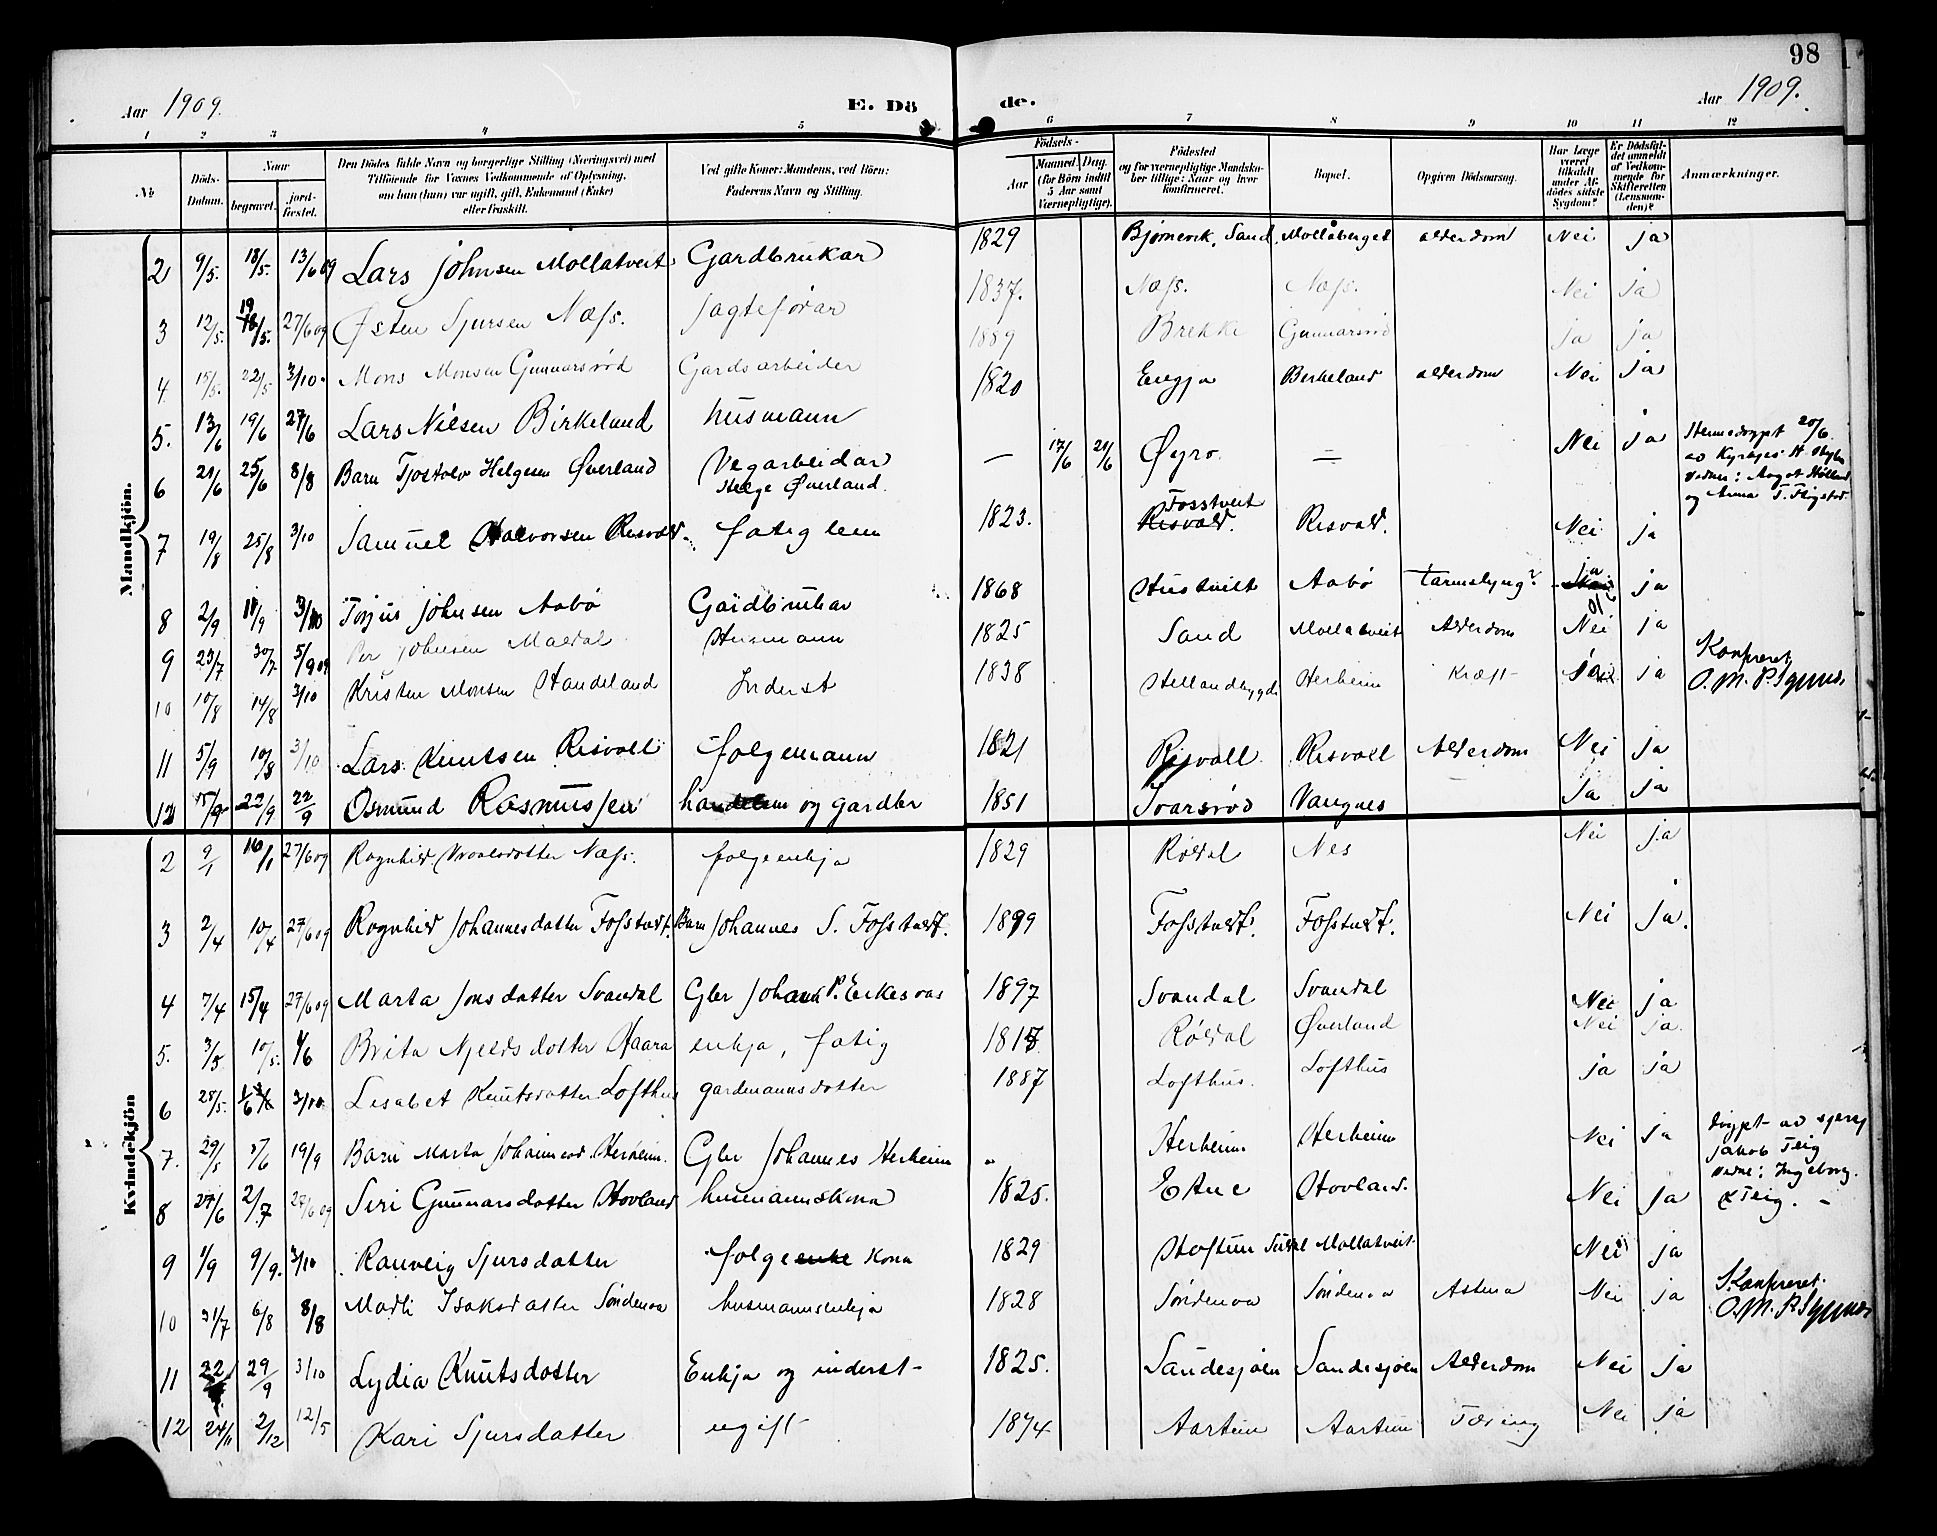 98
Aar 1909.
E. Döde.
Aar 1909.
1 2 3 4 5 6 7 8 9 10 11 12
No
Döds-Datum.
Naar
begravet.
jord-fæstet.
Den Dödes fulde Navn og borgerlige Stilling (Næringsvei) med
Tilföiende for Voxnes Vedkommende af Oplysning,
om han (hun) var ugift, gift, Enkemand (Enke)
eller fraskilt.
Ved gifte Koner: Mandens, ved Börn:
Faderens Navn og Stilling.
Födsels-
Aar
Maaned. Dag.
(for Börn indtil 5 Aar samt Værnepligtige).
Födested
og for værnepligtige Mandskaber tillige: Naar og hvor konfirmeret.
Bopæl.
Opgiven Dödsaarsag.
Har Læge været tilkaldt under Afdödes sidste Sygdom?
Er Dödsfaldet anmeldt af Vedkommende for Skifteretten (Lensmanden)?
Anmærkninger.
Mandkjön.
2 9/5. 18/5. 13/6 09 Lars Johnsen Mollatveit Gardbrukar 1829 Bjørnevik, Sand Mollaberget alderdom Nei ja
3 12/5. 19/5. 27/6 09 Østen Sjursen Næss. Jagteførar 1837. Næss. Næss. Nei ja
4 15/5. 22/5 3/10. Mons Monsen Gunnarsrød Gardsarbeider 1889 Brekke Gunnarsrød ja ja
5. 13/6 19/6 27/6 Lars Nilsen Birkeland husmann 1820 Engja Birkeland alderdom Nei ja
6 21/6 25/6 8/8 Barn Tjostolv Helgesen Øverland Vegarbeidar Helge Øverland. — 17/6 21/6 Øyro. — Nei ja Heimedøypt 20/6
7 19/8 25/8 3/10 Samuel Halvorsen Risvold fatiglem 1823. Fosstveit Risvold. Nei ja
8 2/9 11/9 3/10 Torjus Johnsen Aabø Gardbrukar 1868 Hustveit Aabø Tarmslyng? ja ja
9 23/7 30/7 5/9 09 Per Johnsen Maldal Husmann 1825 Sand Mollatveit Alderdom Nei ja
10 10/8 14/8 3/10 Kristen Monsen Handeland Inderst 1838 Hellandbygd Herheim Kræft ja ja Konfreret, O. M. P.
11 5/9 10/8 3/10 Lars Knutsen Risvoll folgemann 1821 Risvoll Risvoll Alderdom Nei ja
12 15/9 22/9 22/9 Osmund Rasmussen og gardbr 1851 Svarsrød Vangnes Ja ja
Kvindekjön
2 9/1 16/1 27/6 09 Rognhild Næss. folgeenkja 1829 Røldal Nes Nei ja
3 2/4 10/4 27/6 09 Rognhild Johannesdotter Barn Johannes S. 1899 Nei ja.
4 7/4 15/4 27/6 09 Marta Jonsdotter Svandal Gbr 1897 Svandal Svandal Nei ja
5. 3/5 10/5. Brita Njeldsdotter Haara enkja, fatig 1818 Røldal Øverland Nei ja.
6 25/5. 3/10. Lisabet Knutsdotter Lofthus gardmannsdotter 1887 Lofthus. Lofthus ja ja
7. 29/5 19/9 Barn Marta Herheim. Gbr Johannes Herheim " Herheim Herheim Nei ja Jakob Teig
8 27/6 2/7 27/6 09 Siri Gunnarsdotter Hovland husmannskona 1825. Etne Hovland. Nei ja Teig. —
9 1/9 9/9. 3/10 Ranveig Sjursdotter folge enke Kona 1829 Mollatveit. Nei ja
10 31/7 6/8 8/8 Marli Isaksdatter Søndenaa husmannsenkja 1828 Søndenaa Søndenaa Astma Nei ja Konfreret. O. M. P.
11 29/9 3/10 Lydia Knutsdotter Enkja og inderst 1825. Sandesjøen Sandesjøen Alderdom Nei ja
12 24/11 2/12 12/5 Kari Sjursdatter ugift 1874 Aartun Aartun Tæring Nei ja